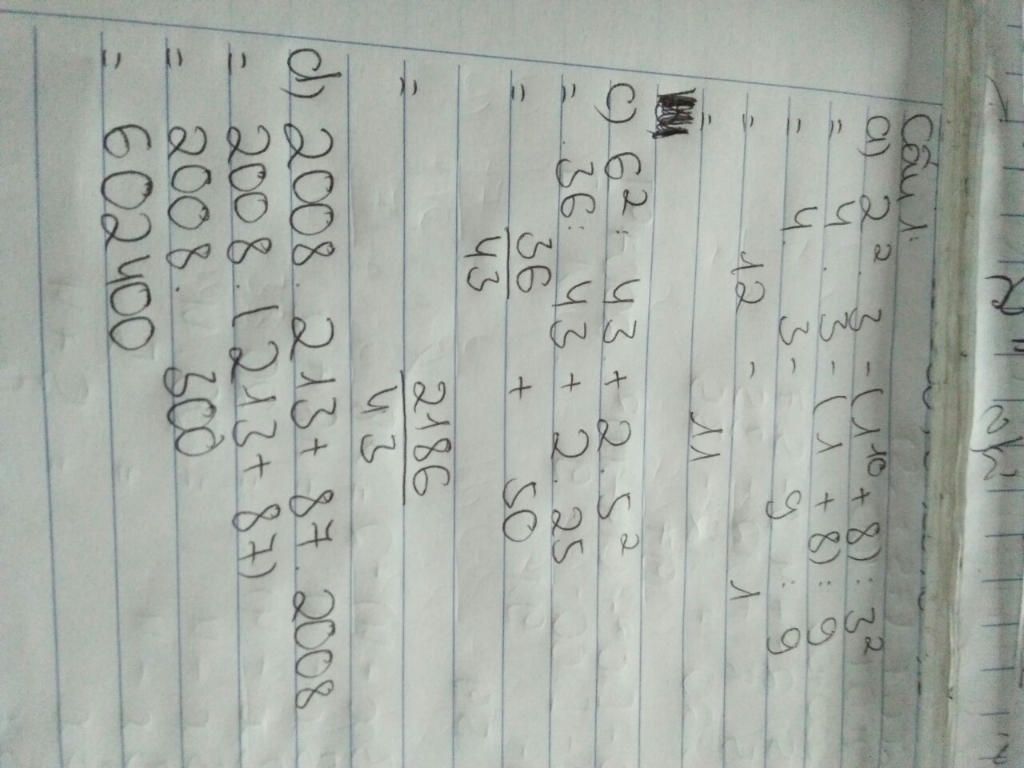 Câu 1:
a) 2². 3 - (1¹⁰ + 8) : 3²
= 4 . 3 - (1 + 8) : 9
= 4 . 3 - 9 : 9
= 12 - 1
= 11
c) 6² : 43 + 2 . 5²
= 36 : 43 + 2 . 25
= 36/43 + 50
= 2186/43
d) 2008 . 213 + 87 . 2008
= 2008 . (213 + 87)
= 2008 . 300
= 602400